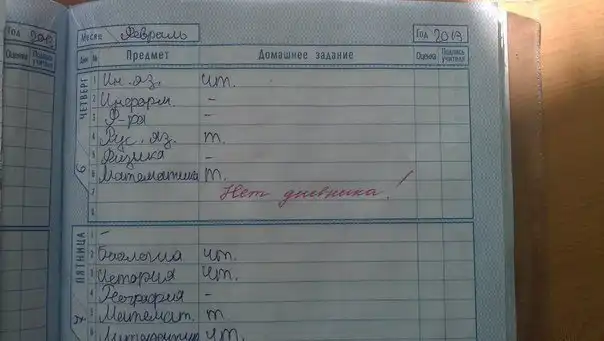 Год 2013
Оценка Подпись учителя
Месяц Февраль Год 2013
Дни № Предмет Домашнее задание Оценка Подпись учителя
ЧЕТВЕРГ 6
1 Ин. яз. чт.
2 Информ. -
3 Ф-ра -
4 Рус. яз. т.
5 Физика -
6 Математика т.
7 Нет дневника!
8
ПЯТНИЦА
1 -
2 Биология чт.
3 История чт.
4 География -
5 Математ. т
6 Литература чт.